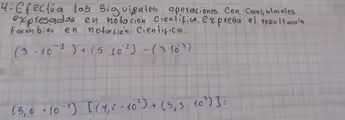 4. Efectúa las siguientes operaciones con cantidades
expresadas en notación científica. Expresa el resultado
también en notación científica.
(3 · 10⁻²) + (5 · 10⁻²) - (3 · 10⁻³)
(5,6 · 10⁻²) [(4,2 · 10²) + (3,3 · 10³)] =